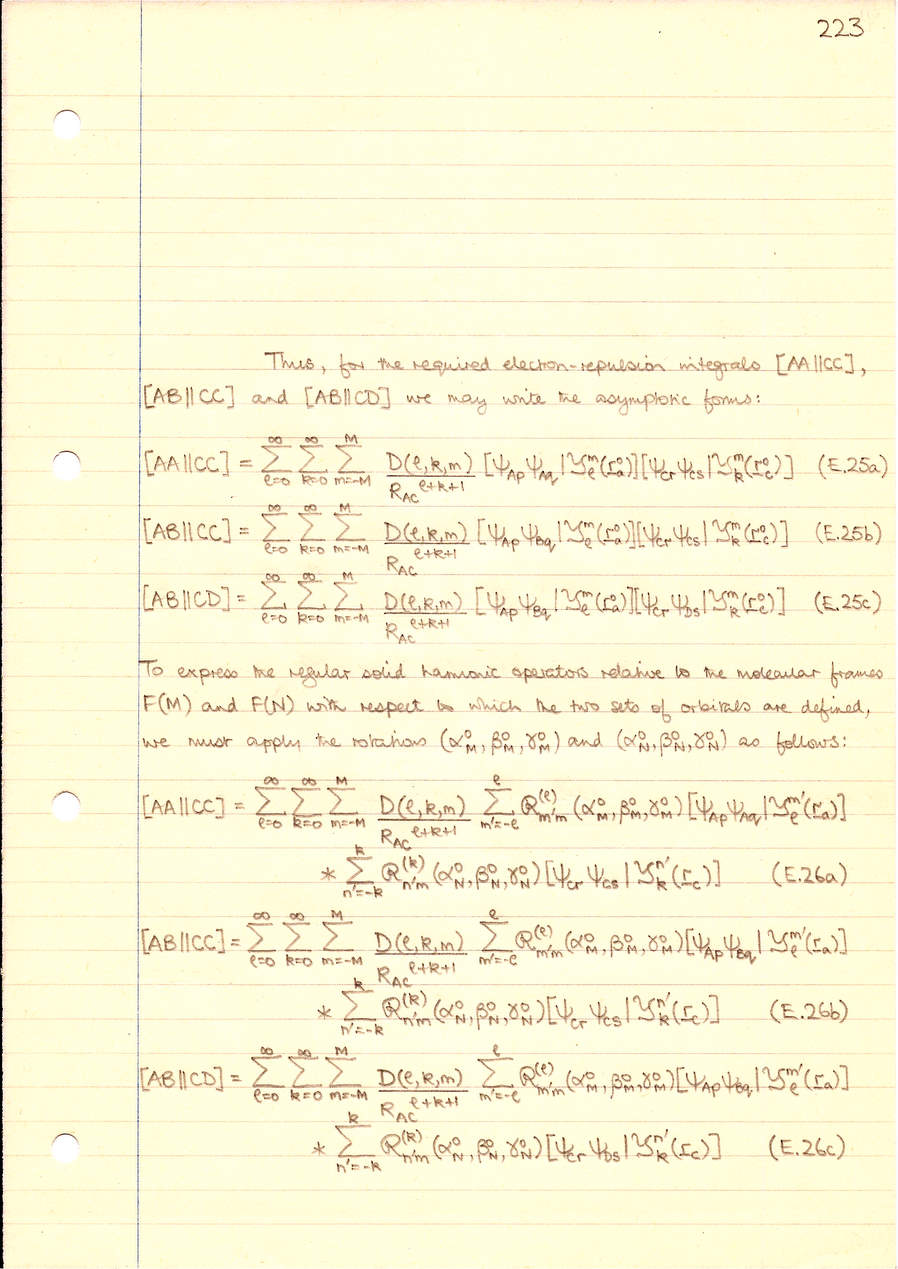 223
Thus, for the required electron-repulsion integrals [AA||CC],
[AB||CC] and [AB||CD] we may write the asymptotic forms:
[AA||CC] = ∑_{ℓ=0}^{∞} ∑_{k=0}^{∞} ∑_{m=-M}^{M} D(ℓ,k,m)/R_{AC}^{ℓ+k+1} [ψ_{Ap} ψ_{Aq} | 𝒴_ℓ^m(r_a^o)][ψ_{Cr} ψ_{Cs} | 𝒴_k^m(r_c^o)] (E.25a)
[AB||CC] = ∑_{ℓ=0}^{∞} ∑_{k=0}^{∞} ∑_{m=-M}^{M} D(ℓ,k,m)/R_{AC}^{ℓ+k+1} [ψ_{Ap} ψ_{Bq} | 𝒴_ℓ^m(r_a^o)][ψ_{Cr} ψ_{Cs} | 𝒴_k^m(r_c^o)] (E.25b)
[AB||CD] = ∑_{ℓ=0}^{∞} ∑_{k=0}^{∞} ∑_{m=-M}^{M} D(ℓ,k,m)/R_{AC}^{ℓ+k+1} [ψ_{Ap} ψ_{Bq} | 𝒴_ℓ^m(r_a^o)][ψ_{Cr} ψ_{Ds} | 𝒴_k^m(r_c^o)] (E.25c)
To express the regular solid harmonic operators relative to the molecular frames
F(M) and F(N) with respect to which the two sets of orbitals are defined,
we must apply the rotations (α_M^o, β_M^o, γ_M^o) and (α_N^o, β_N^o, γ_N^o) as follows:
[AA||CC] = ∑_{ℓ=0}^{∞} ∑_{k=0}^{∞} ∑_{m=-M}^{M} D(ℓ,k,m)/R_{AC}^{ℓ+k+1} ∑_{m'=-ℓ}^{ℓ} ℛ_{m'm}^{(ℓ)} (α_M^o, β_M^o, γ_M^o) [ψ_{Ap} ψ_{Aq} | 𝒴_ℓ^{m'}(r_a)]
* ∑_{n'=-k}^{k} ℛ_{n'm}^{(k)} (α_N^o, β_N^o, γ_N^o) [ψ_{Cr} ψ_{Cs} | 𝒴_k^{n'}(r_c)] (E.26a)
[AB||CC] = ∑_{ℓ=0}^{∞} ∑_{k=0}^{∞} ∑_{m=-M}^{M} D(ℓ,k,m)/R_{AC}^{ℓ+k+1} ∑_{m'=-ℓ}^{ℓ} ℛ_{m'm}^{(ℓ)} (α_M^o, β_M^o, γ_M^o) [ψ_{Ap} ψ_{Bq} | 𝒴_ℓ^{m'}(r_a)]
* ∑_{n'=-k}^{k} ℛ_{n'm}^{(k)} (α_N^o, β_N^o, γ_N^o) [ψ_{Cr} ψ_{Cs} | 𝒴_k^{n'}(r_c)] (E.26b)
[AB||CD] = ∑_{ℓ=0}^{∞} ∑_{k=0}^{∞} ∑_{m=-M}^{M} D(ℓ,k,m)/R_{AC}^{ℓ+k+1} ∑_{m'=-ℓ}^{ℓ} ℛ_{m'm}^{(ℓ)} (α_M^o, β_M^o, γ_M^o) [ψ_{Ap} ψ_{Bq} | 𝒴_ℓ^{m'}(r_a)]
* ∑_{n'=-k}^{k} ℛ_{n'm}^{(k)} (α_N^o, β_N^o, γ_N^o) [ψ_{Cr} ψ_{Ds} | 𝒴_k^{n'}(r_c)] (E.26c)